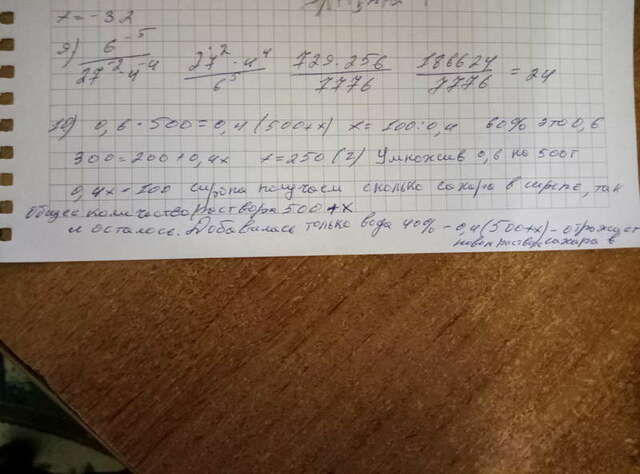 x = -3,2
9) 6^-5 / 27^-2 · 4^-4   27^2 · 4^4 / 6^5   729 · 256 / 7776   186624 / 7776 = 24
10) 0,6 · 500 = 0,4 (500+x) x = 100:0,4 60% это 0,6
300 = 200 + 0,4x x = 250 (г) Умножив 0,6 на 500г
0,4x = 100 сиропа получаем сколько сахара в сиропе, так
Общее количество раствора 500 + x
и осталось. Добавилась только вода 40% - 0,4(500+x) -
сахара в